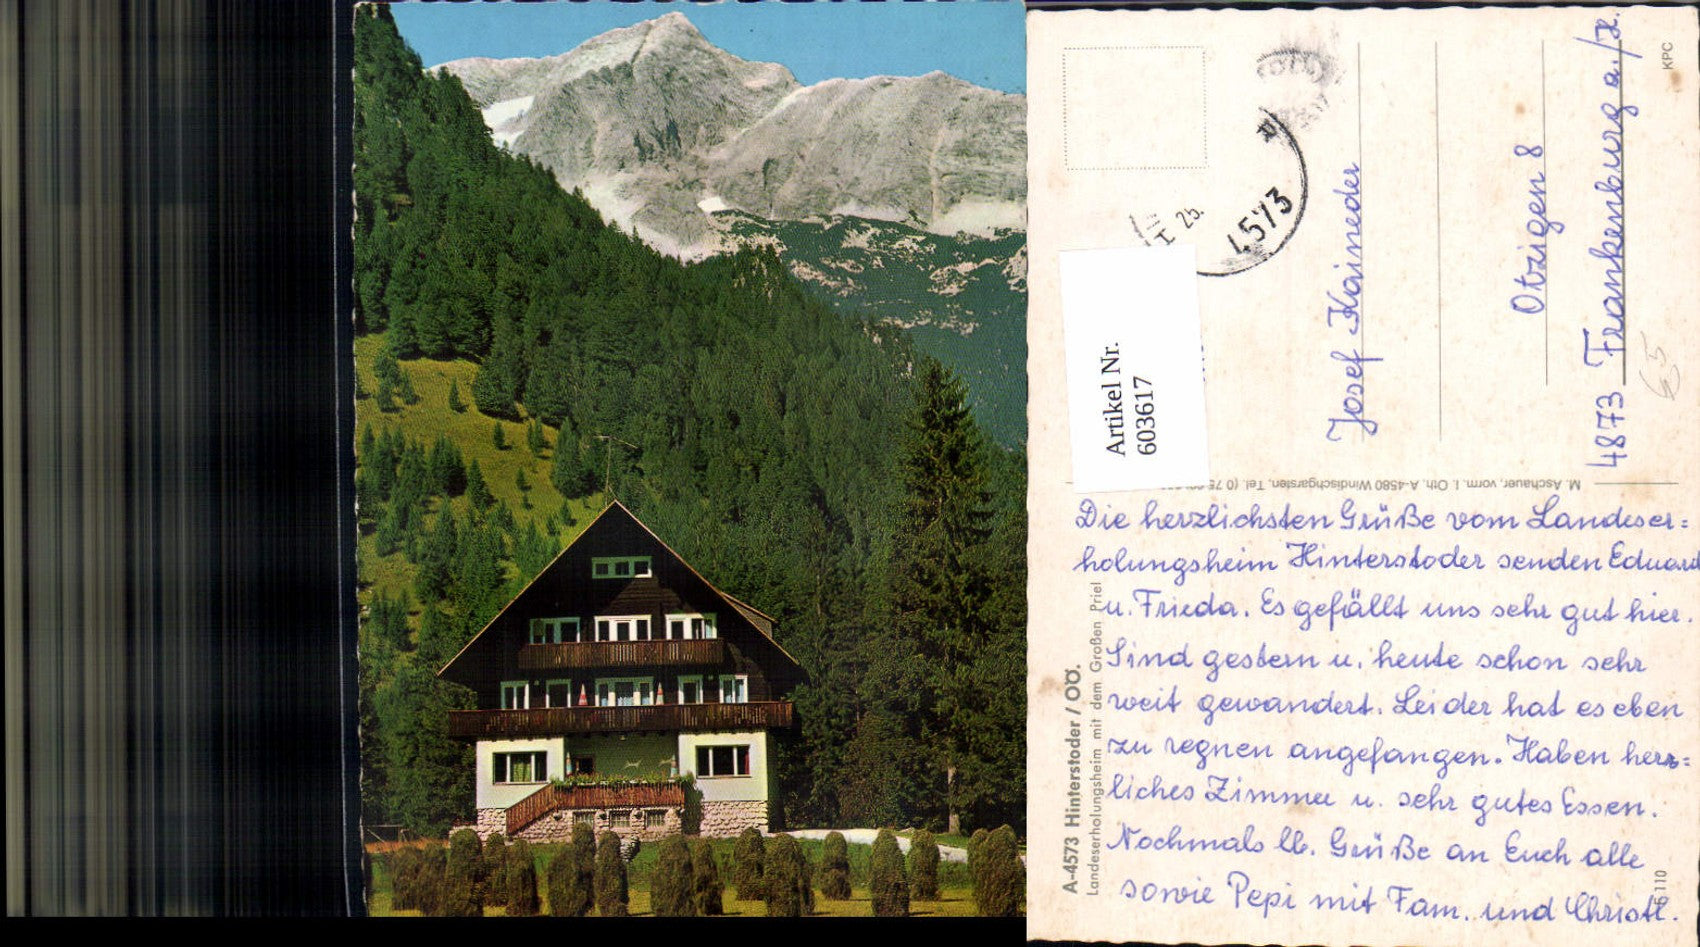 Die herzlichsten Grüße vom Landeser=
holungsheim Hinterstoder senden Eduard
u. Frieda. Es gefällt uns sehr gut hier.
Sind gestern u. heute schon sehr
weit gewandert. Leider hat es eben
zu regnen angefangen. Haben herr=
liches Zimmer u. sehr gutes Essen.
Nochmals lb. Grüße an Euch alle
sowie Pepi mit Fam. und Christl.
Josef Kaineder
Otzigen 8
4873 Frankenburg a./H.
Artikel Nr.
603617
4573
25.
M. Aschauer, vorm. J. Oth, A-4580 Windischgarsten, Tel. (0 75
A-4573 Hinterstoder / OÖ.
Landeserholungsheim mit dem Großen Priel
KPC
65
110